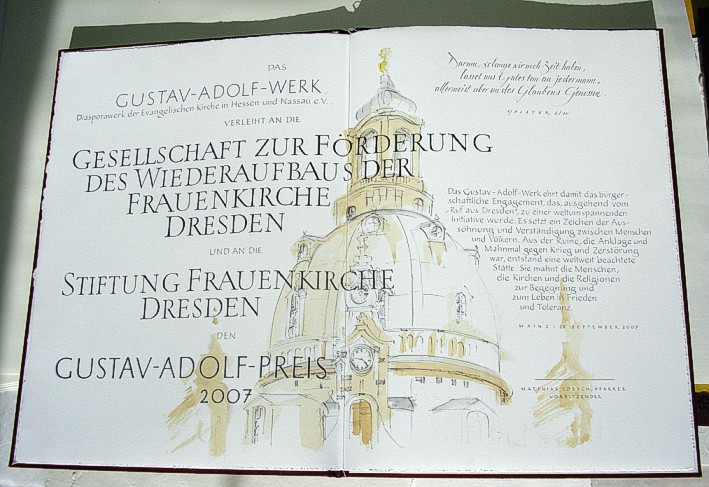 DAS
GUSTAV-ADOLF-WERK
Diasporawerk der Evangelischen Kirche in Hessen und Nassau e.V.,
VERLEIHT AN DIE
GESELLSCHAFT ZUR FÖRDERUNG
DES WIEDERAUFBAUS DER
FRAUENKIRCHE
DRESDEN
UND AN DIE
STIFTUNG FRAUENKIRCHE
DRESDEN
DEN
GUSTAV-ADOLF-PREIS
2007
Darum, solange wir noch Zeit haben,
lasset uns Gutes tun an jedermann,
allermeist aber an des Glaubens Genossen.
GALATER 6/10
Das Gustav-Adolf-Werk ehrt damit das bürger-
schaftliche Engagement, das, ausgehend vom
„Ruf aus Dresden", zu einer weltumspannenden
Initiative wurde. Es setzt ein Zeichen der Aus-
söhnung und Verständigung zwischen Menschen
und Völkern. Aus der Ruine, die Anklage und
Mahnmal gegen Krieg und Zerstörung
war, entstand eine weltweit beachtete
Stätte. Sie mahnt die Menschen,
die Kirchen und die Religionen
zur Begegnung und
zum Leben in Frieden
und Toleranz.
MAINZ, SEPTEMBER 2007
MATTHIAS LOESCH, PFARRER
VORSITZENDER